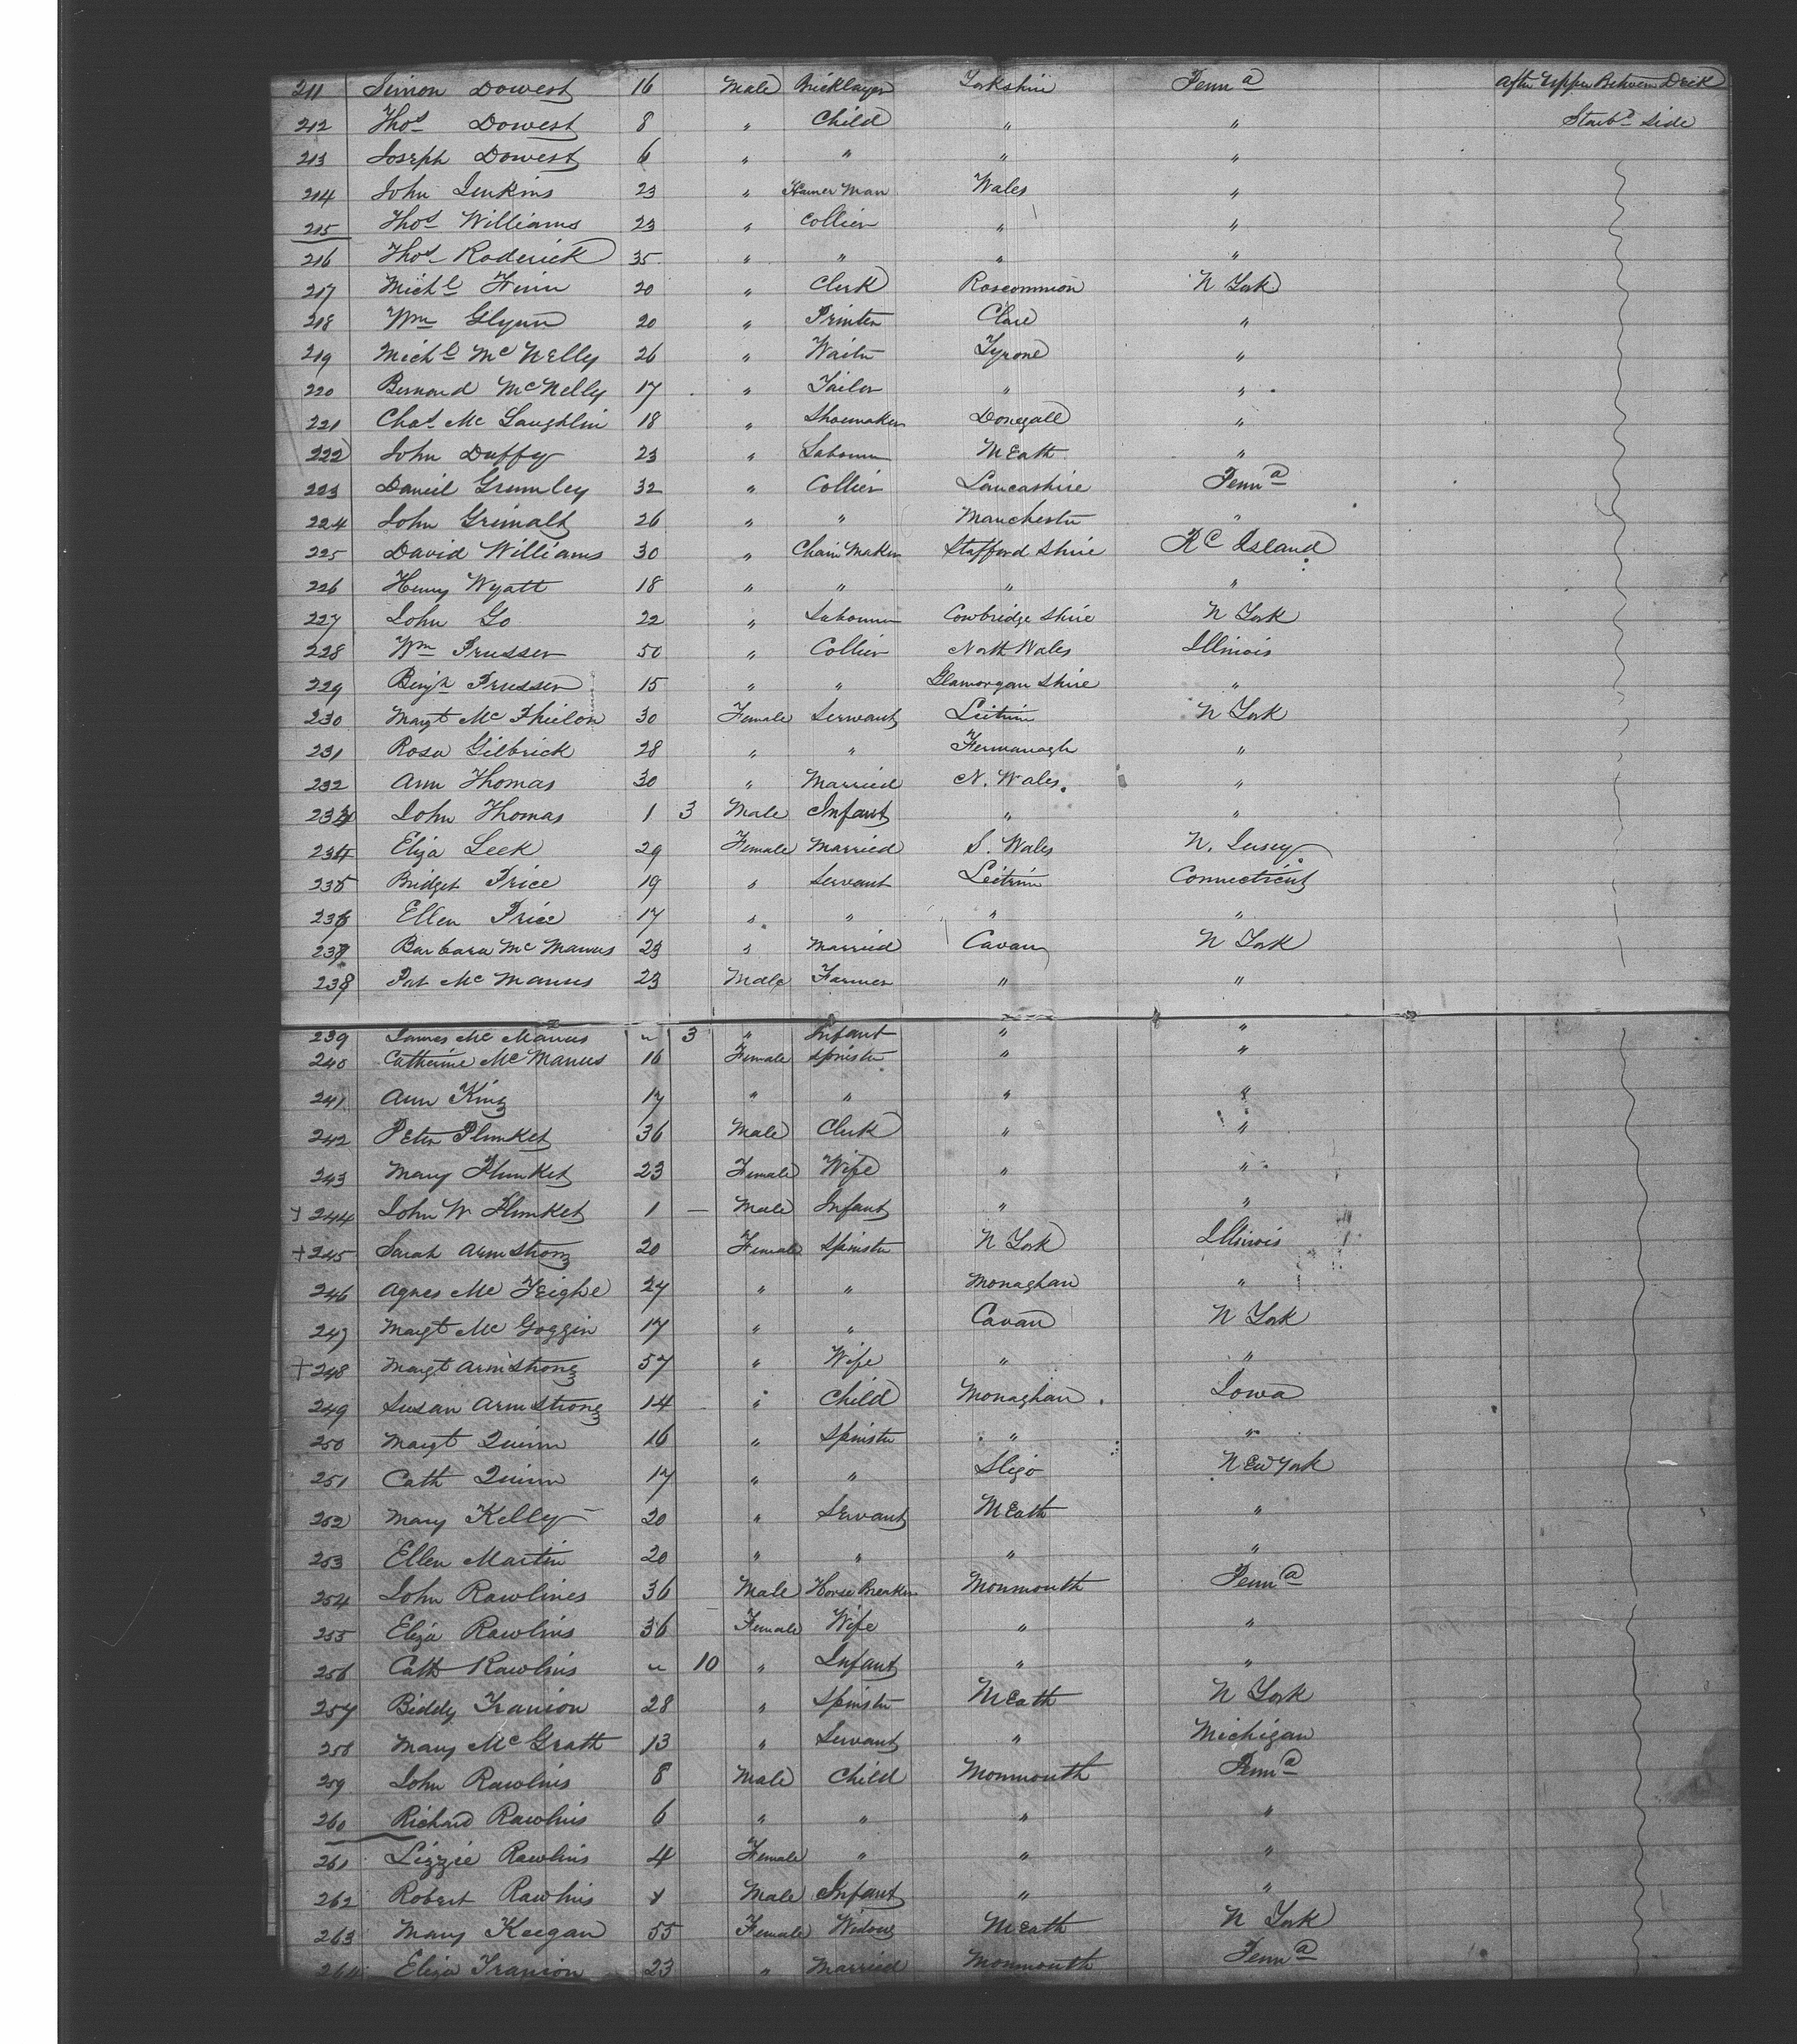 211 Simon Dowest 16 Male Bricklayer Yorkshire Penn a After Upper Between Deck
212 Thos Dowest 8 " Child " " Starbd Side
213 Joseph Dowest 6 " " " "
214 John Jenkins 23 " Hamer Man Wales "
215 Thos Williams 23 " Collier " "
216 Thos Roderick 35 " " " "
217 Michl Finn 20 " Clerk Roscommon N York
218 Wm Glynn 20 " Printer Clare "
219 Michl Mc Nelly 26 " Waiter Tyrone "
220 Bernard McNelly 17 " Tailor " "
221 Chas Mc Laughlin 18 " Shoemaker Donegall "
222 John Duffy 23 " Labourer MEath "
223 Daniel Grumley 32 " Collier Lancashire Penn a
224 John Grimalt 26 " " Manchester "
225 David Williams 30 " Chain Maker Stafford Shire Island
226 Henry Wyatt 18 " " " "
227 John Go 22 " Labourer Cowbridge Shire N York
228 Wm Prusser 50 " Collier North Wales Illinois
229 Benjn Prusser 15 " " Glamorgan Shire "
230 Margt Mc 30 Female Servant Leitrim N York
231 Rosa Gilbrick 28 " " Fermanagh "
232 Ann Thomas 30 " Married N. Wales "
233 John Thomas 1 3 Male Infant " "
234 Eliza Leek 29 Female Married S. Wales N. Jersey
235 Bridget Price 19 " Servant Leitrim Connecticut
236 Ellen Price 17 " " " "
237 Barbara Mc Manus 23 " Married Cavan N York
238 Pat Mc Manus 23 Male Farmer " "
239 James Mc Manus " 3 " Infant " "
240 Catherine Mc Manus 16 Female Spinster " "
241 Ann King 17 " " " "
242 Peter Plunket 36 Male Clerk " "
243 Mary Plunket 23 Female Wife " "
244 John W Plunket 1 — Male Infant " "
+ 245 Sarah Armstrong 20 Female Spinster N York Illinois
246 Agnes Mc Teighe 27 " " Monaghan "
247 Margt Mc Goggin 17 " " Cavan N York
+ 248 Margt Armstrong 57 " Wife " "
249 Susan Armstrong 14 " Child Monaghan Iowa
250 Margt Quinn 16 " Spinster " "
251 Cath Quinn 17 " " Sligo NEw York
252 Mary Kelly 20 " Servant MEath "
253 Ellen Martin 20 " " " "
254 John Rawlines 36 Male Horse Breaker Monmouth Penn a
255 Eliza Rawlins 36 Female Wife " "
256 Cath Rawlins " 10 " Infant " "
257 Biddy Franion 28 " Spinster MEath N York
258 Mary McGrath 13 " Servant " Michigan
259 John Rawlins 8 Male Child Monmouth Penn a
260 Richard Rawlins 6 " " " "
261 Lizzie Rawlins 4 Female " " "
262 Robert Rawlins Male Infant " "
263 Mary Keegan 55 Female Widow MEath N York
264 Eliza Franion 23 " Married Monmouth Penn a